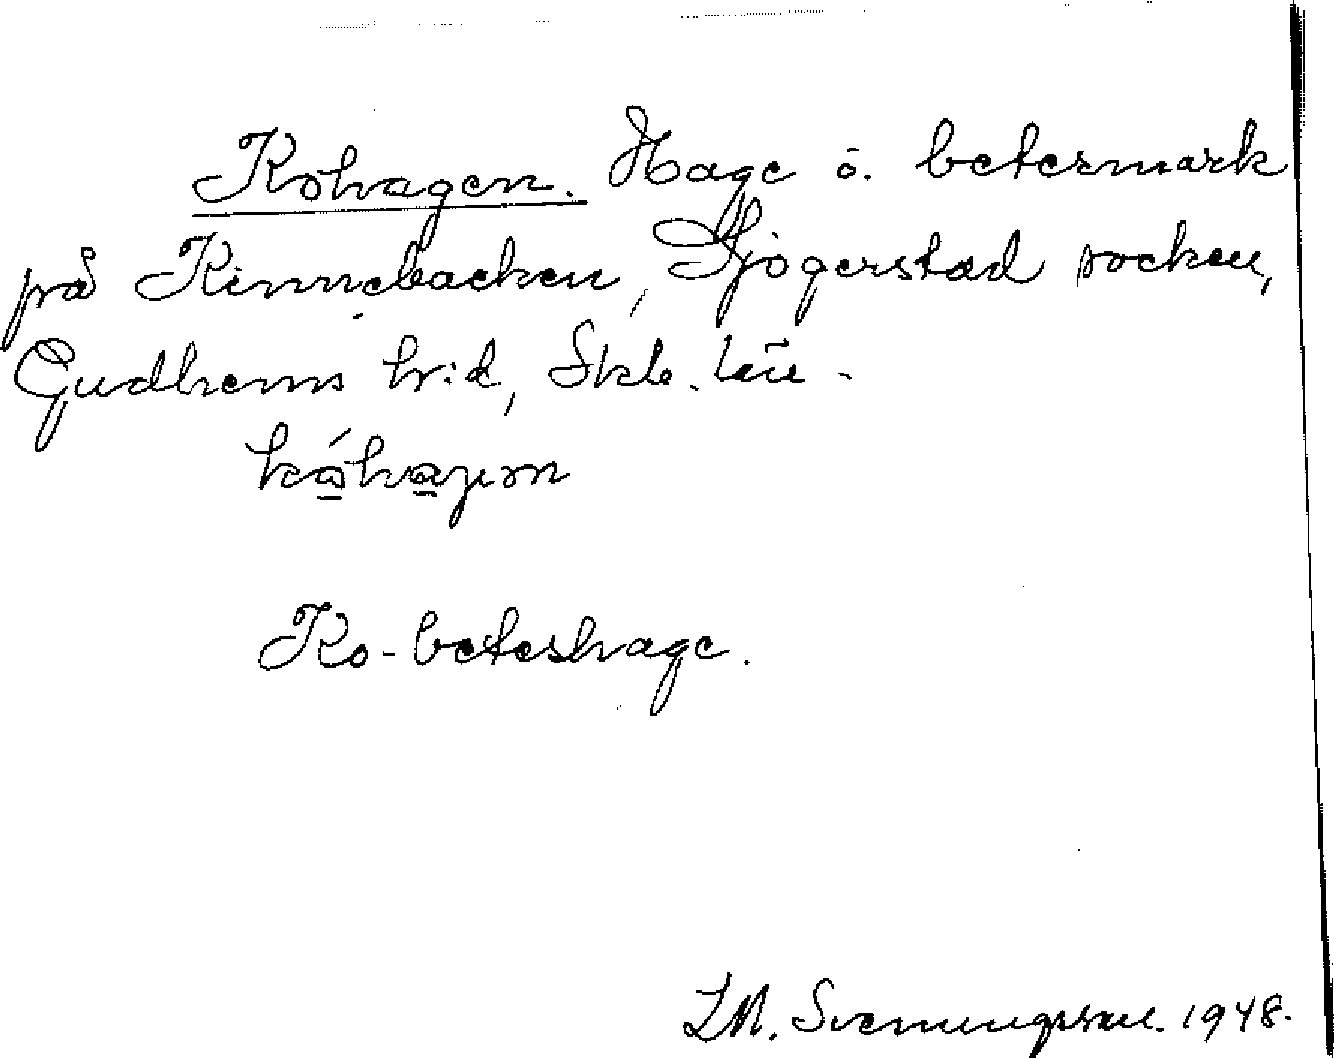 Kohagen. Hage o. betesmark
på Kinnebacken, Sjögerstad socken,
Gudhems hd, Skb. län.
Ko-beteshage.
LM. Svenungsson. 1948.